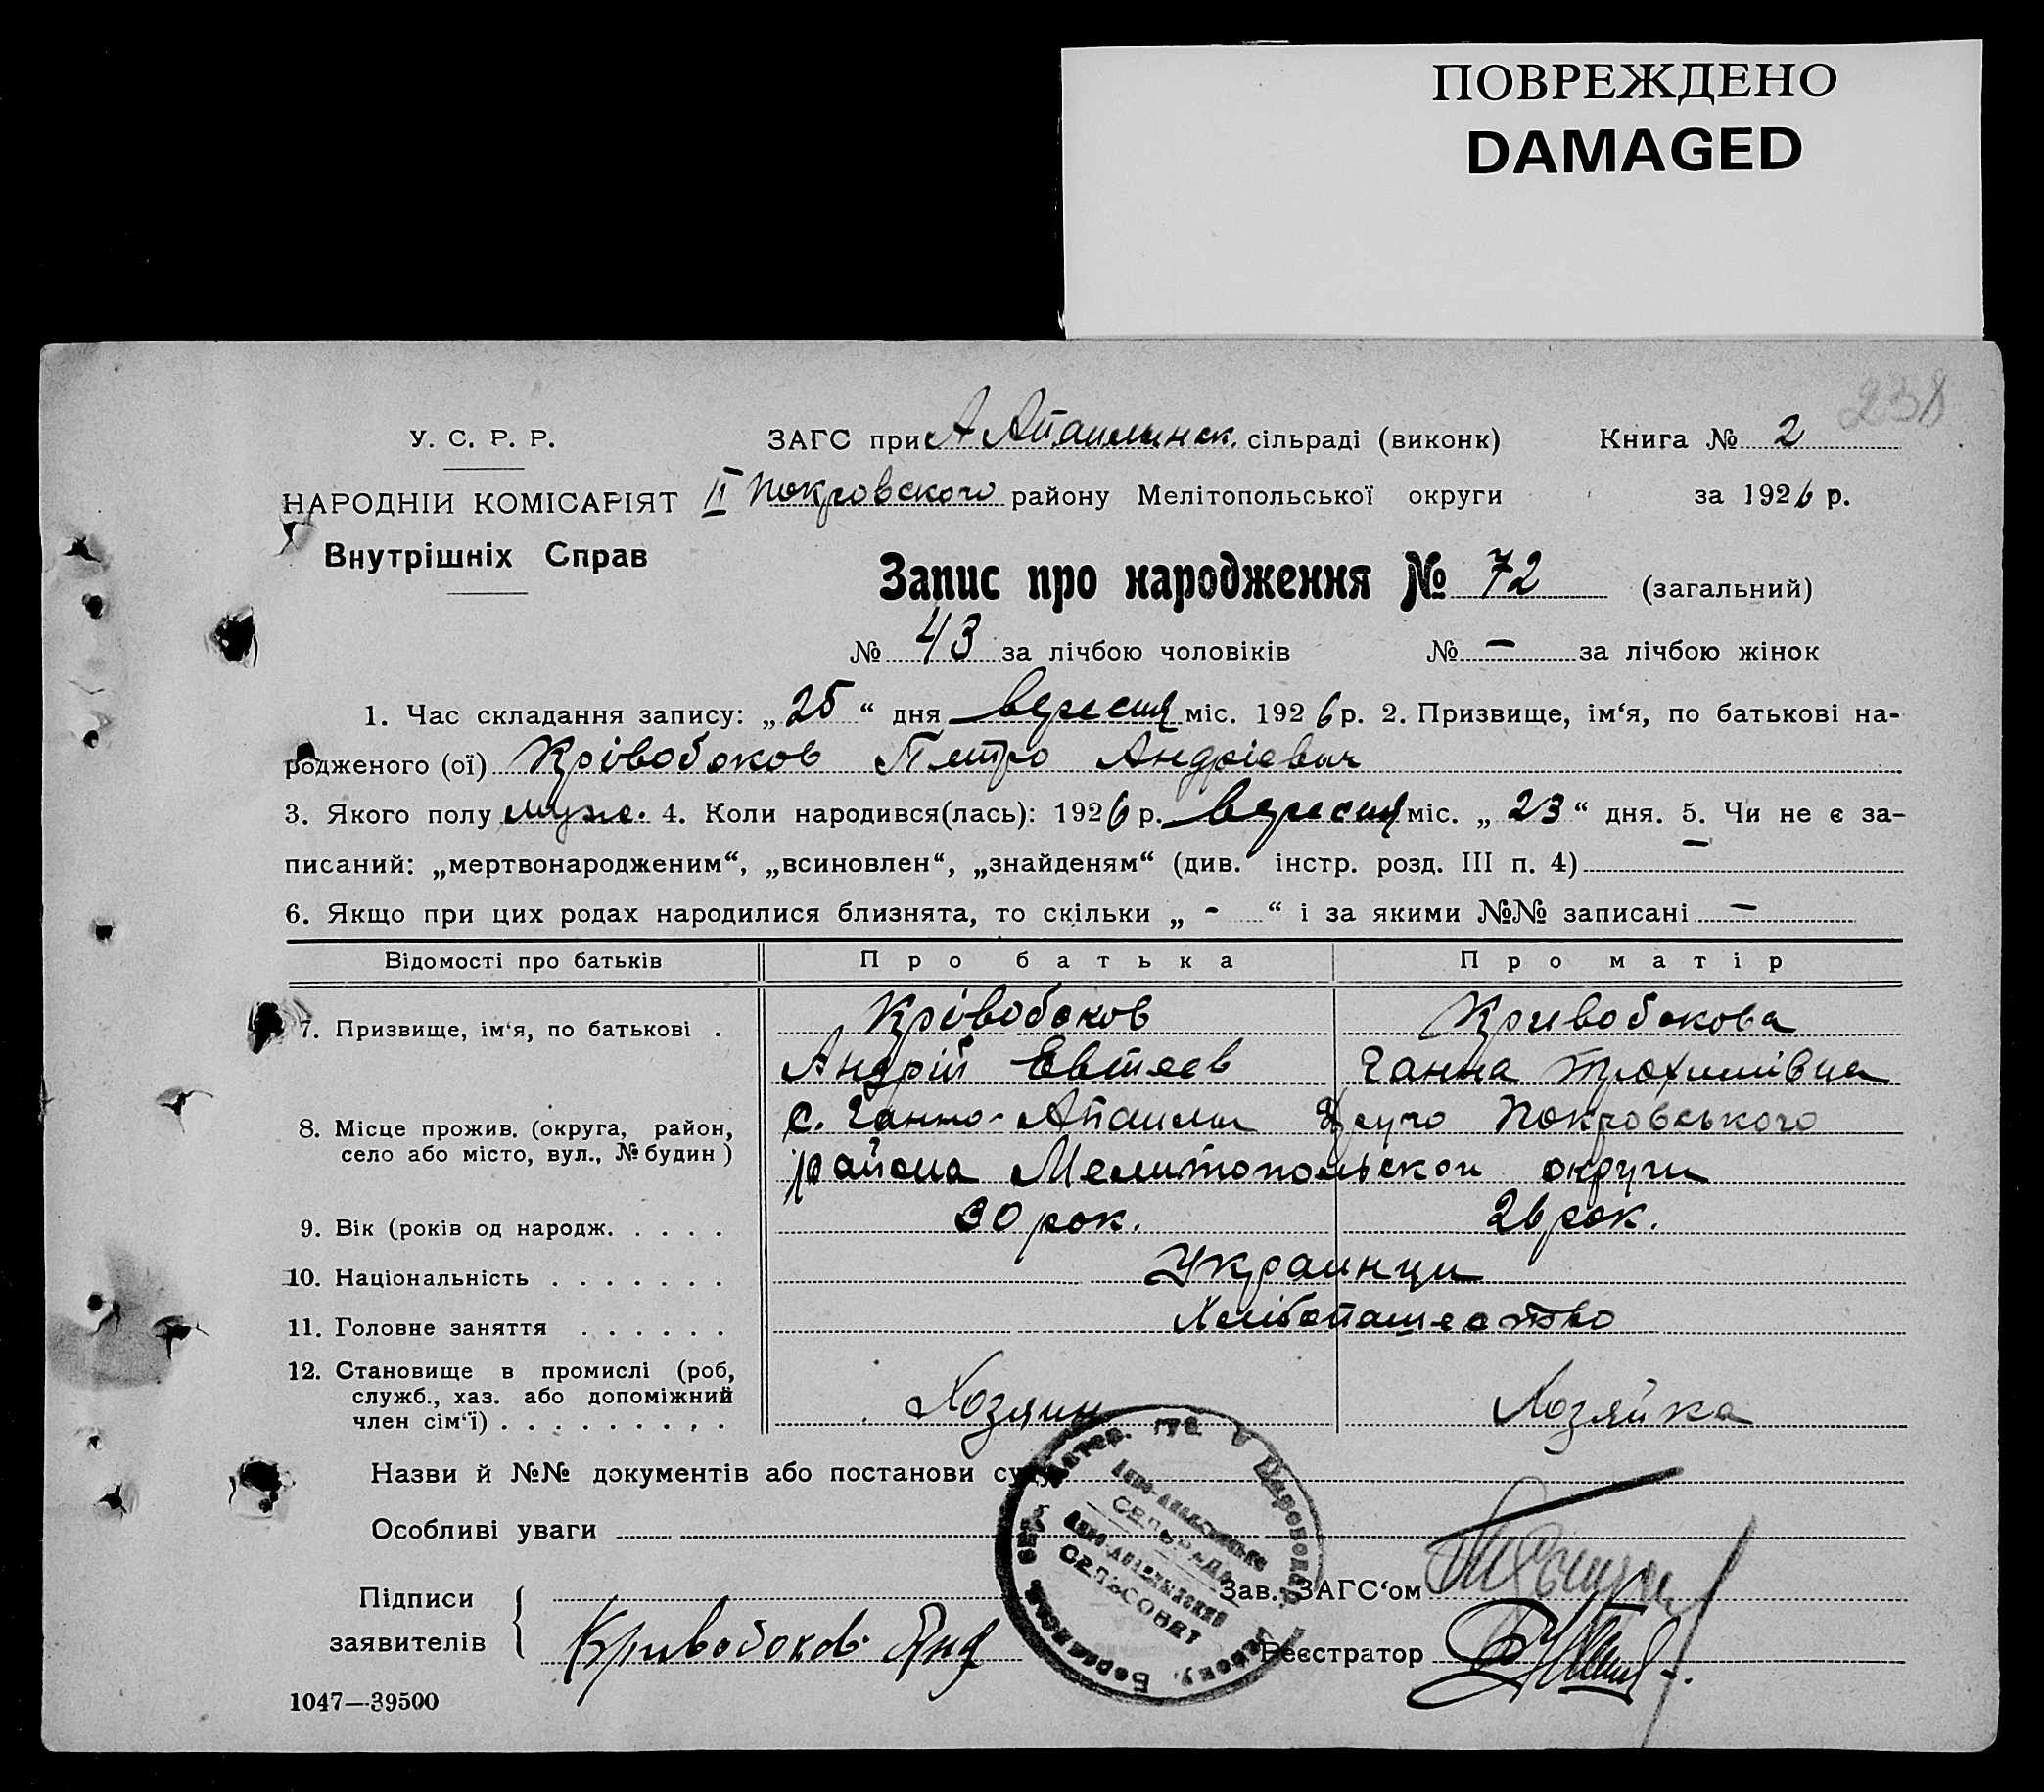 ПОВРЕЖДЕНО
DAMAGED
238
У. С. Р. Р.
ЗАГС при А Апаилинск. сільраді (виконк)
Книга № 2
НАРОДНІЙ КОМІСАРІЯТ
II Покровского району Мелітопольської округи
за 1926 р.
Внутрішніх Справ
Запис про народження № 72 (загальний)
№ 43 за лічбою чоловіків № - за лічбою жінок
1. Час складання запису: „25“ дня вересня міс. 1926 р. 2. Призвище, ім‘я, по батькові на-
родженого (ої) Крівобоков Петро Андрієвич
3. Якого полу муж. 4. Коли народився(лась): 1926 р. вересня міс. „23“ дня. 5. Чи не є за-
писаний: „мертвонародженим“, „всиновлен“, „знайденям“ (див. інстр. розд. III п. 4) -
6. Якщо при цих родах народилися близнята, то скільки „ - “ і за якими №№ записані -
Відомості про батьків
Про батька
Про матір
7. Призвище, ім‘я, по батькові .
Крівобоков
Кривобокова
Андрій Евтеев
Ганна Трохимівна
8. Місце прожив. (округа, район,
село або місто, вул., № будин )
с. Ганно-Апаили Покровського
района Мелитопольскои округи
9. Вік (років од народж. . . . .
30 рок.
26 рок.
10. Національність . . . . . . .
Украинци
11. Головне заняття . . . . . .
Хлібопашество
12. Становище в промислі (роб,
служб., хаз. або допоміжний
член сім‘ї) . . . . . . . . .
Хозяин
Хозяйка
Назви й №№ документів або постанови суду
Особливі уваги
СЕЛЬРАДА
СЕЛЬСОВЕТ
Підписи
заявителів
Кривобоков Анд
Зав. ЗАГС‘ом
Реєстратор
1047—39500